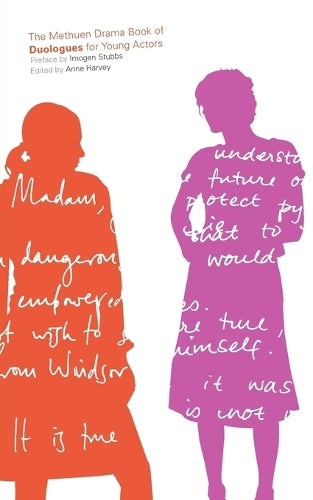 The Methuen Drama Book of
Duologues for Young Actors
Preface by Imogen Stubbs
Edited by Anne Harvey
Madam,
dangerou
empowered
t wish to s
rom Windsor
It is true
understa
e future o
protect py
that to i
would
es.
re true,
himself.
it was
is not